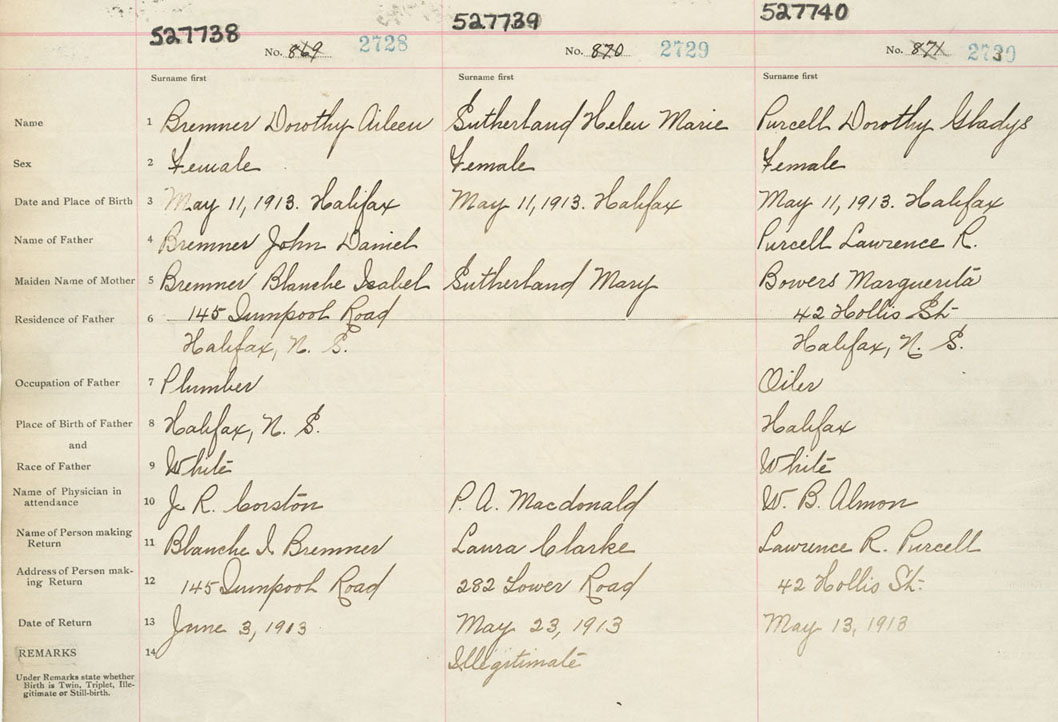 527738 527739 527740
No. 869 2728 No. 870 2729 No. 871 2730
Surname first Surname first Surname first
Name 1 Bremner Dorothy Aileen Sutherland Helen Marie Purcell Dorothy Gladys
Sex 2 Female Female Female
Date and Place of Birth 3 May 11, 1913. Halifax May 11, 1913. Halifax May 11, 1913. Halifax
Name of Father 4 Bremner John Daniel Purcell Lawrence R.
Maiden Name of Mother 5 Bremner Blanche Isabel Sutherland Mary Bowers Marguerita
Residence of Father 6 145 Road 42 Hollis St.
Halifax, N. S. Halifax, N. S.
Occupation of Father 7 Plumber Oiler
Place of Birth of Father 8 Halifax, N. S. Halifax
and
Race of Father 9 White White
Name of Physician in
attendance 10 J. R. Corston P. A. Macdonald W. B. Almon
Name of Person making
Return 11 Blanche I Bremner Laura Clarke Lawrence R. Purcell
Address of Person mak-
ing Return 12 145 Road 282 Lower Road 42 Hollis St.
Date of Return 13 June 3, 1913 May 23, 1913 May 13, 1913
REMARKS 14 Illegitimate
Under Remarks state whether
Birth is Twin, Triplet, Ille-
gitimate or Still-birth.